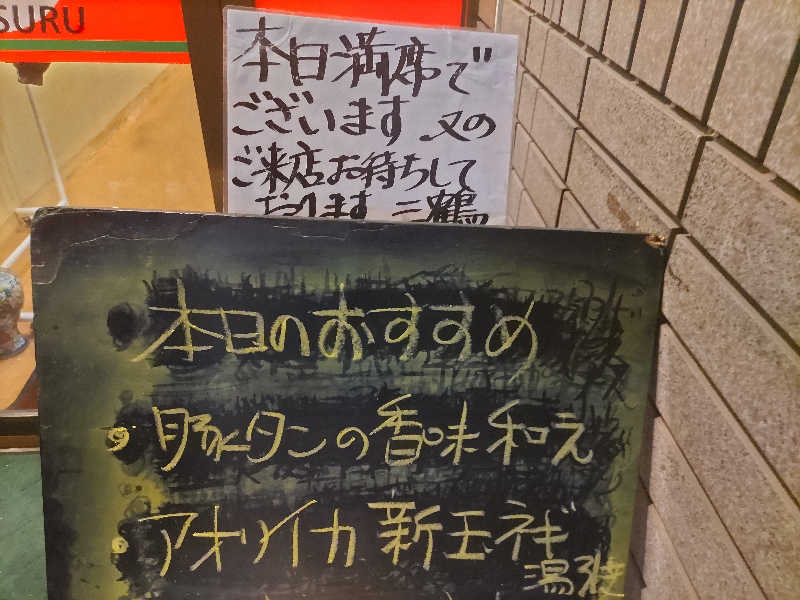 SURU
本日満席で
ございます 又の
ご来店お待ちして
おります 三鶴
本日のおすすめ
豚タンの香味和え
アオリイカ 新玉ネギ
湯葉